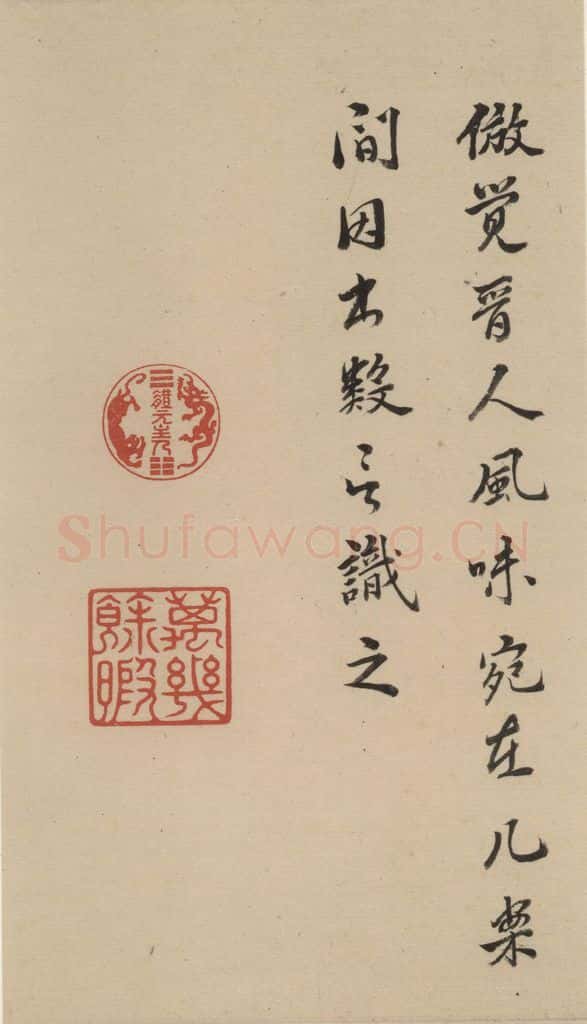 倣覺晉人風味宛在几案
間因書數言識之
體元主人
萬幾餘暇
Shufawang.CN